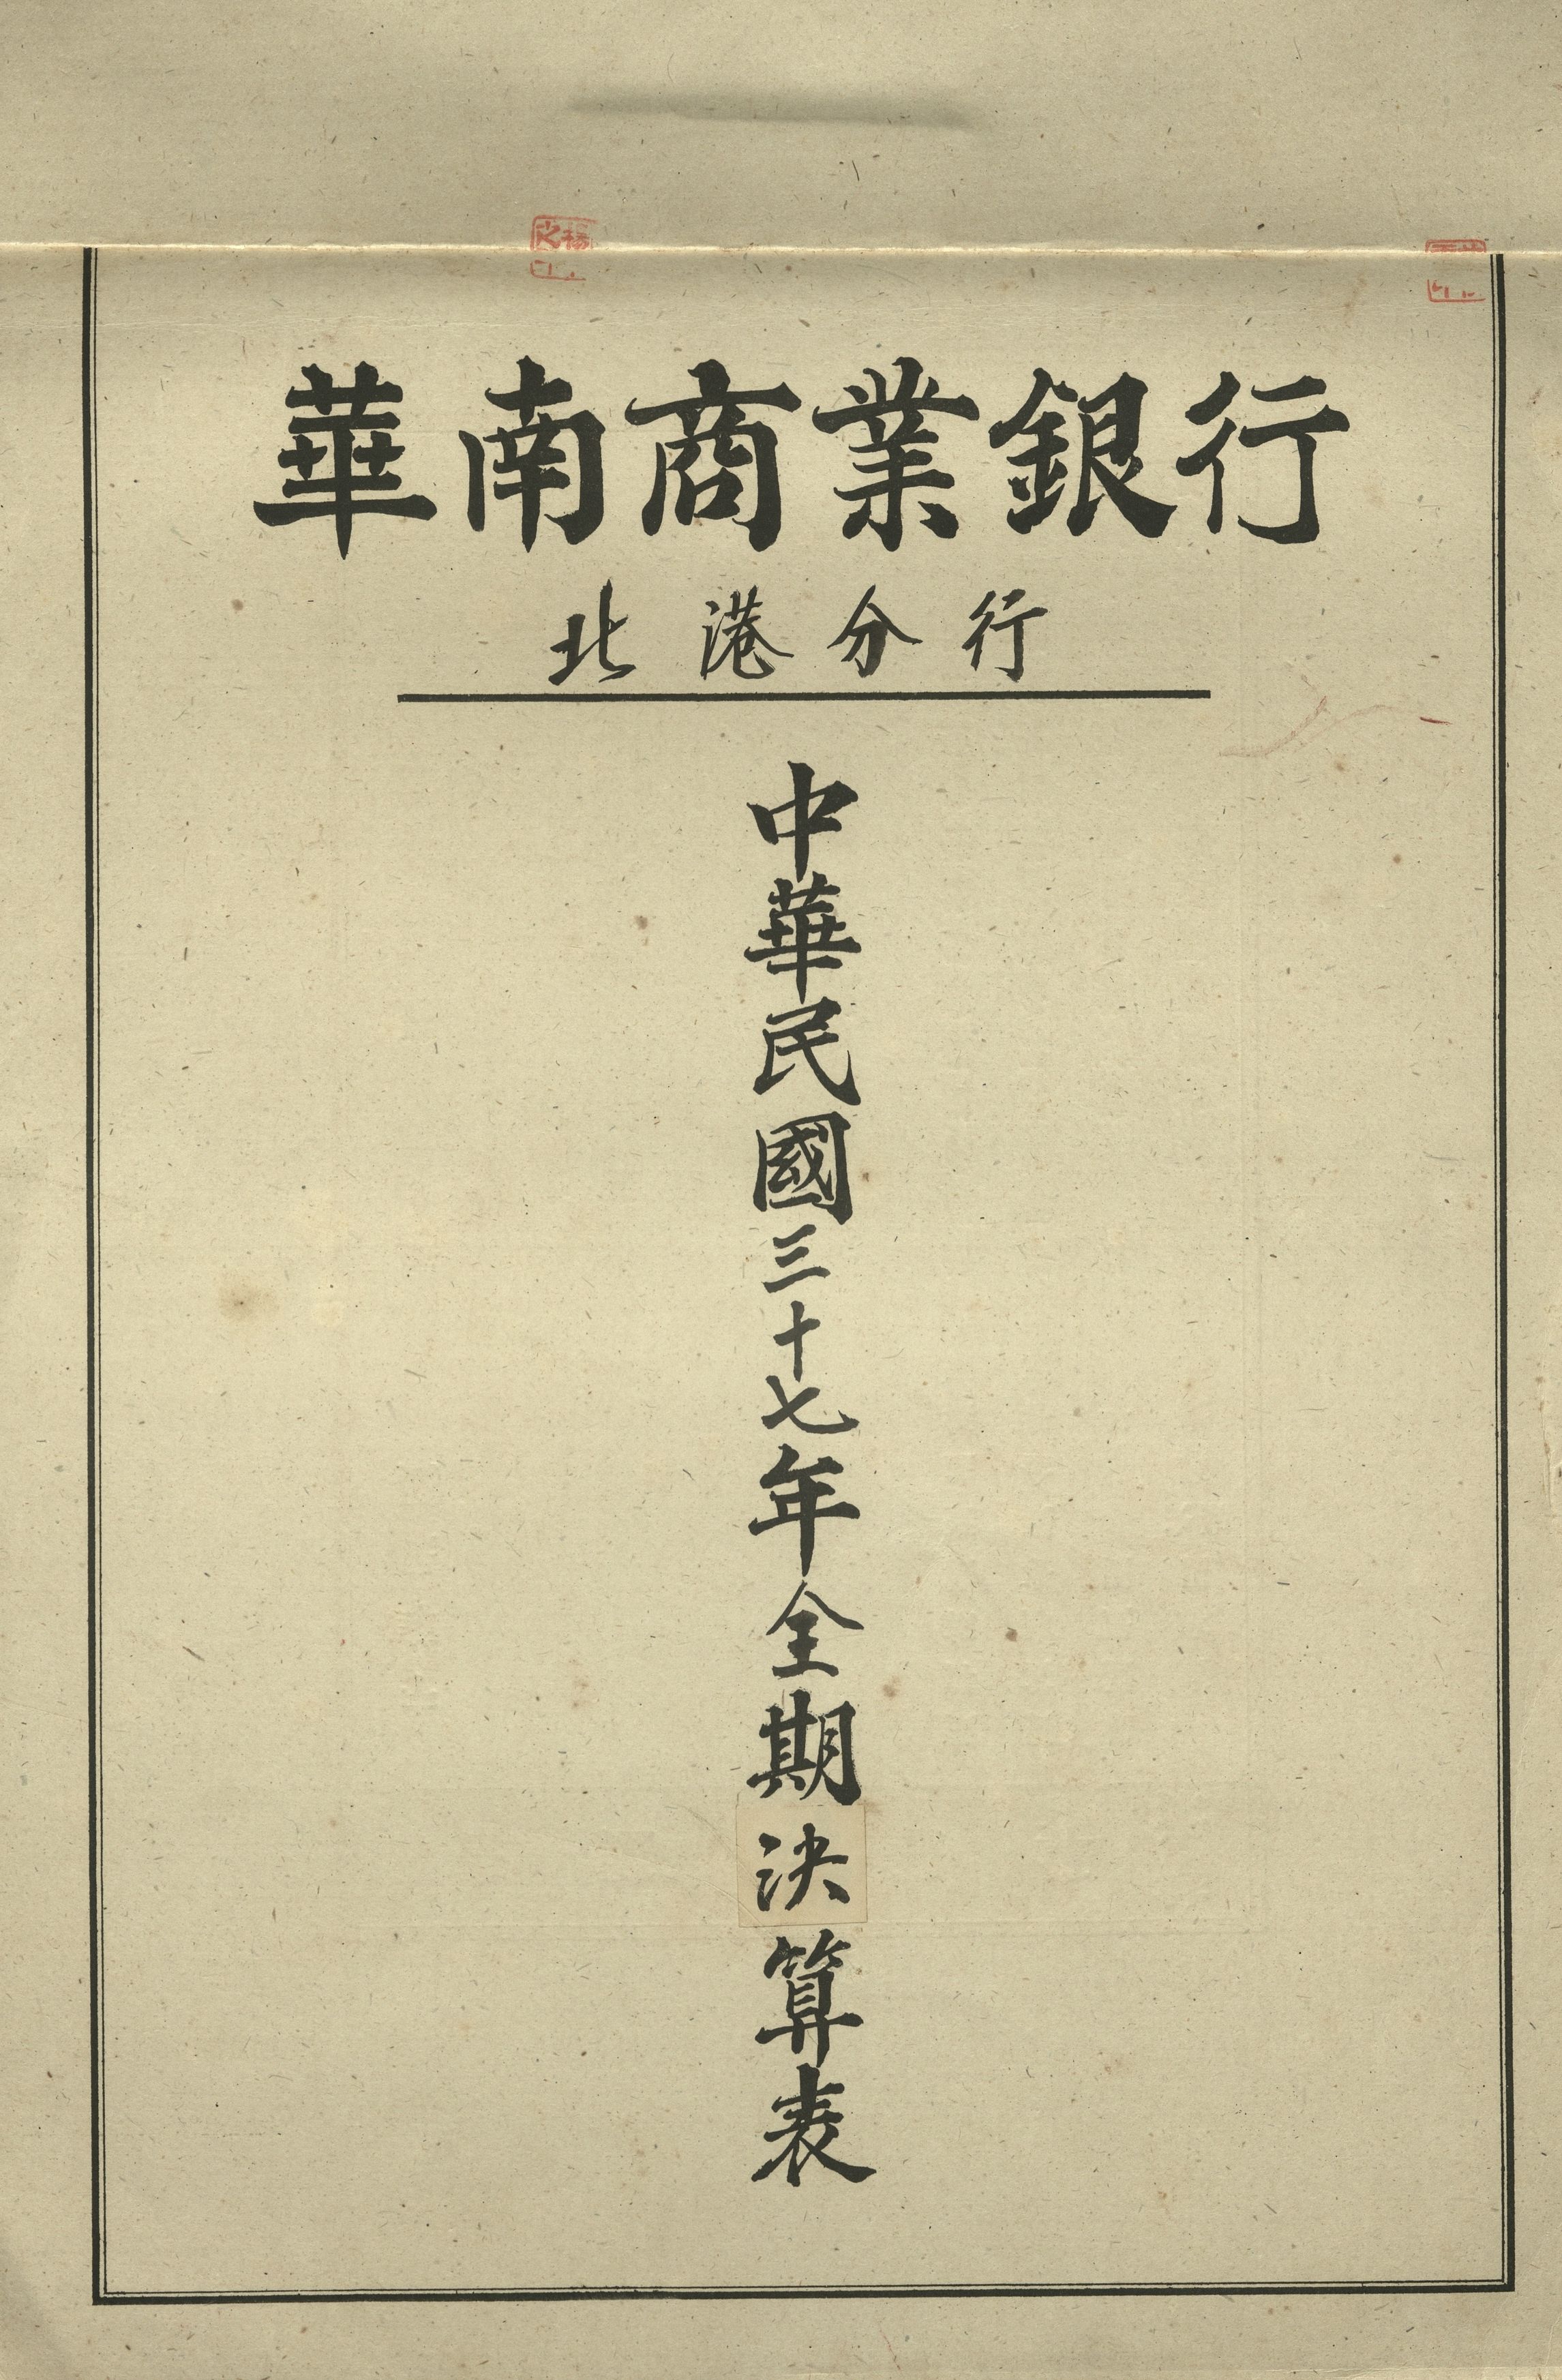 華南商業銀行
北港分行
中華民國三十七年全期決算表